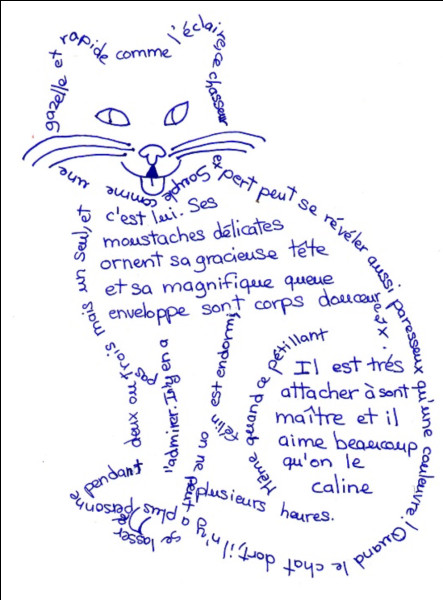 Souple comme une
gazelle et
rapide comme
l'éclaire, ce chasseur
expert peut se révéler aussi paresseux qu'une couleuvre! Quand le chat dort, il n'y a plus personne pendant
plusieurs heures.
Même quand ce pétillant
félin est endormi,
on ne peut
se lasser de
l'admirer. Il n'y en a
pas
deux ou trois mais un seul, et
c'est lui. Ses
moustaches délicates
ornent sa gracieuse tête
et sa magnifique queue
enveloppe sont corps doucereux.
Il est trés
attacher à sont
maître et il
aime beaucoup
qu'on le
caline